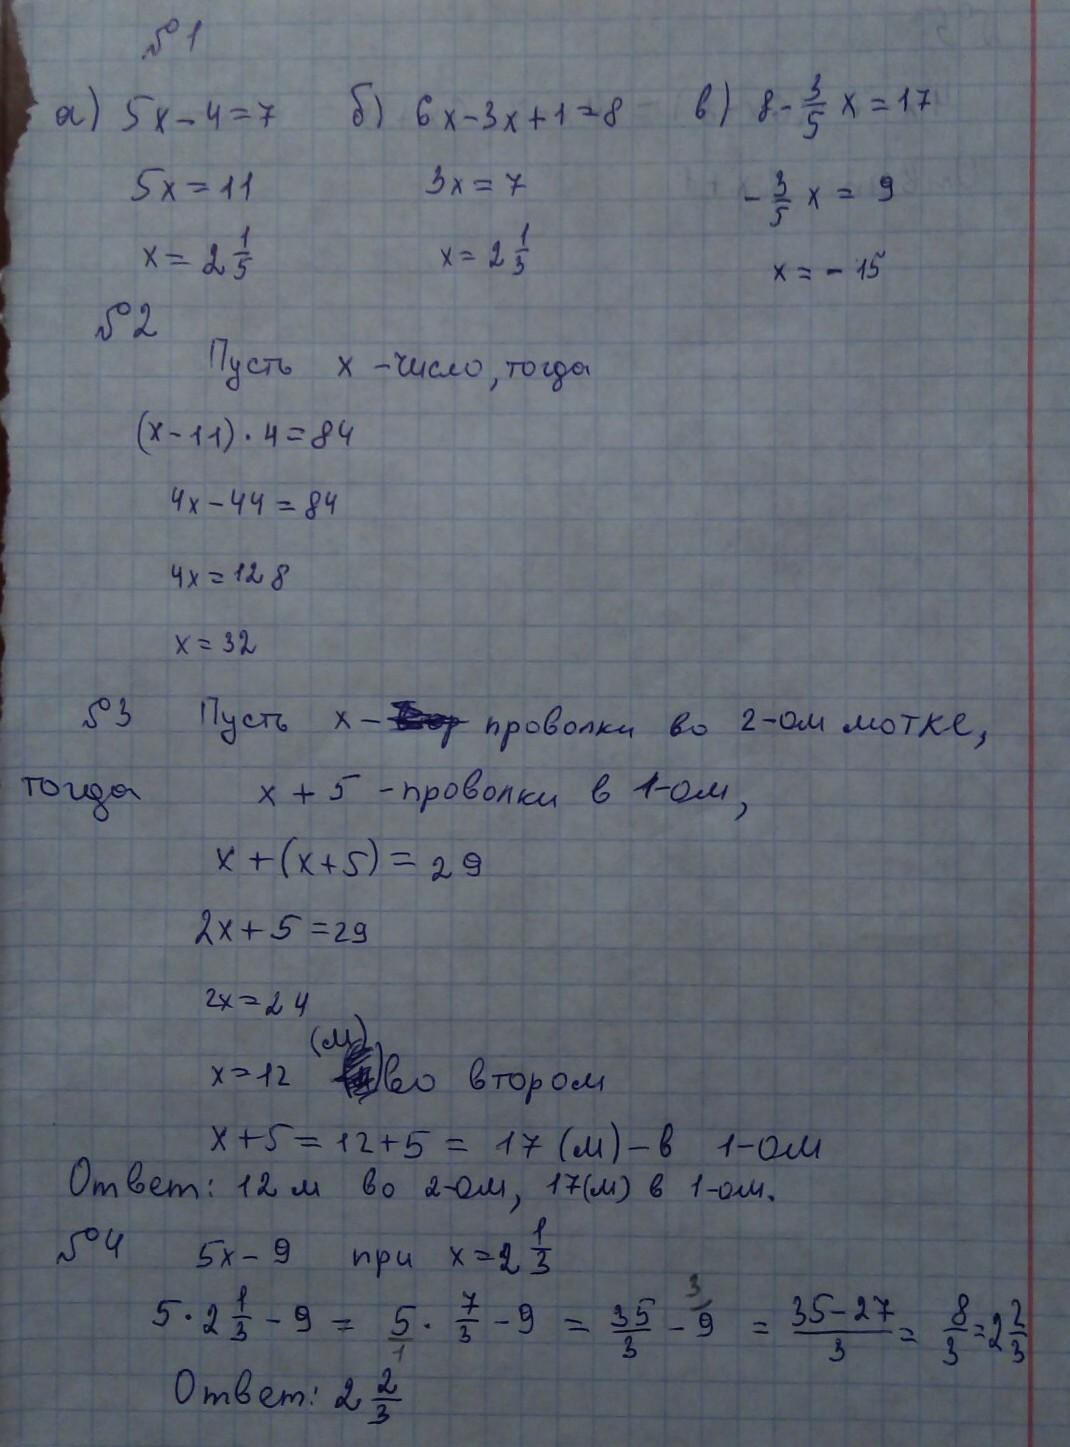 №1
а) 5x-4=7 б) 6x-3x+1=8 в) 8-3/5 x=17
5x=11 3x=7 -3/5 x = 9
x=2 1/5 x=2 1/3 x=-15
№2
Пусть x-число, тогда
(x-11)·4=84
4x-44=84
4x=128
x=32
№3 Пусть x- проволки во 2-ом мотке,
тогда x+5 -проволки в 1-ом,
x+(x+5)=29
2x+5=29
2x=24
x=12 (м) во втором
x+5=12+5=17 (м)-в 1-ом
Ответ: 12 м во 2-ом, 17(м) в 1-ом.
№4 5x-9 при x=2 1/3
5·2 1/3 -9 = 5/1 · 7/3 -9 = 35/3 - 9 3/ = (35-27)/3 = 8/3 =2 2/3
Ответ: 2 2/3